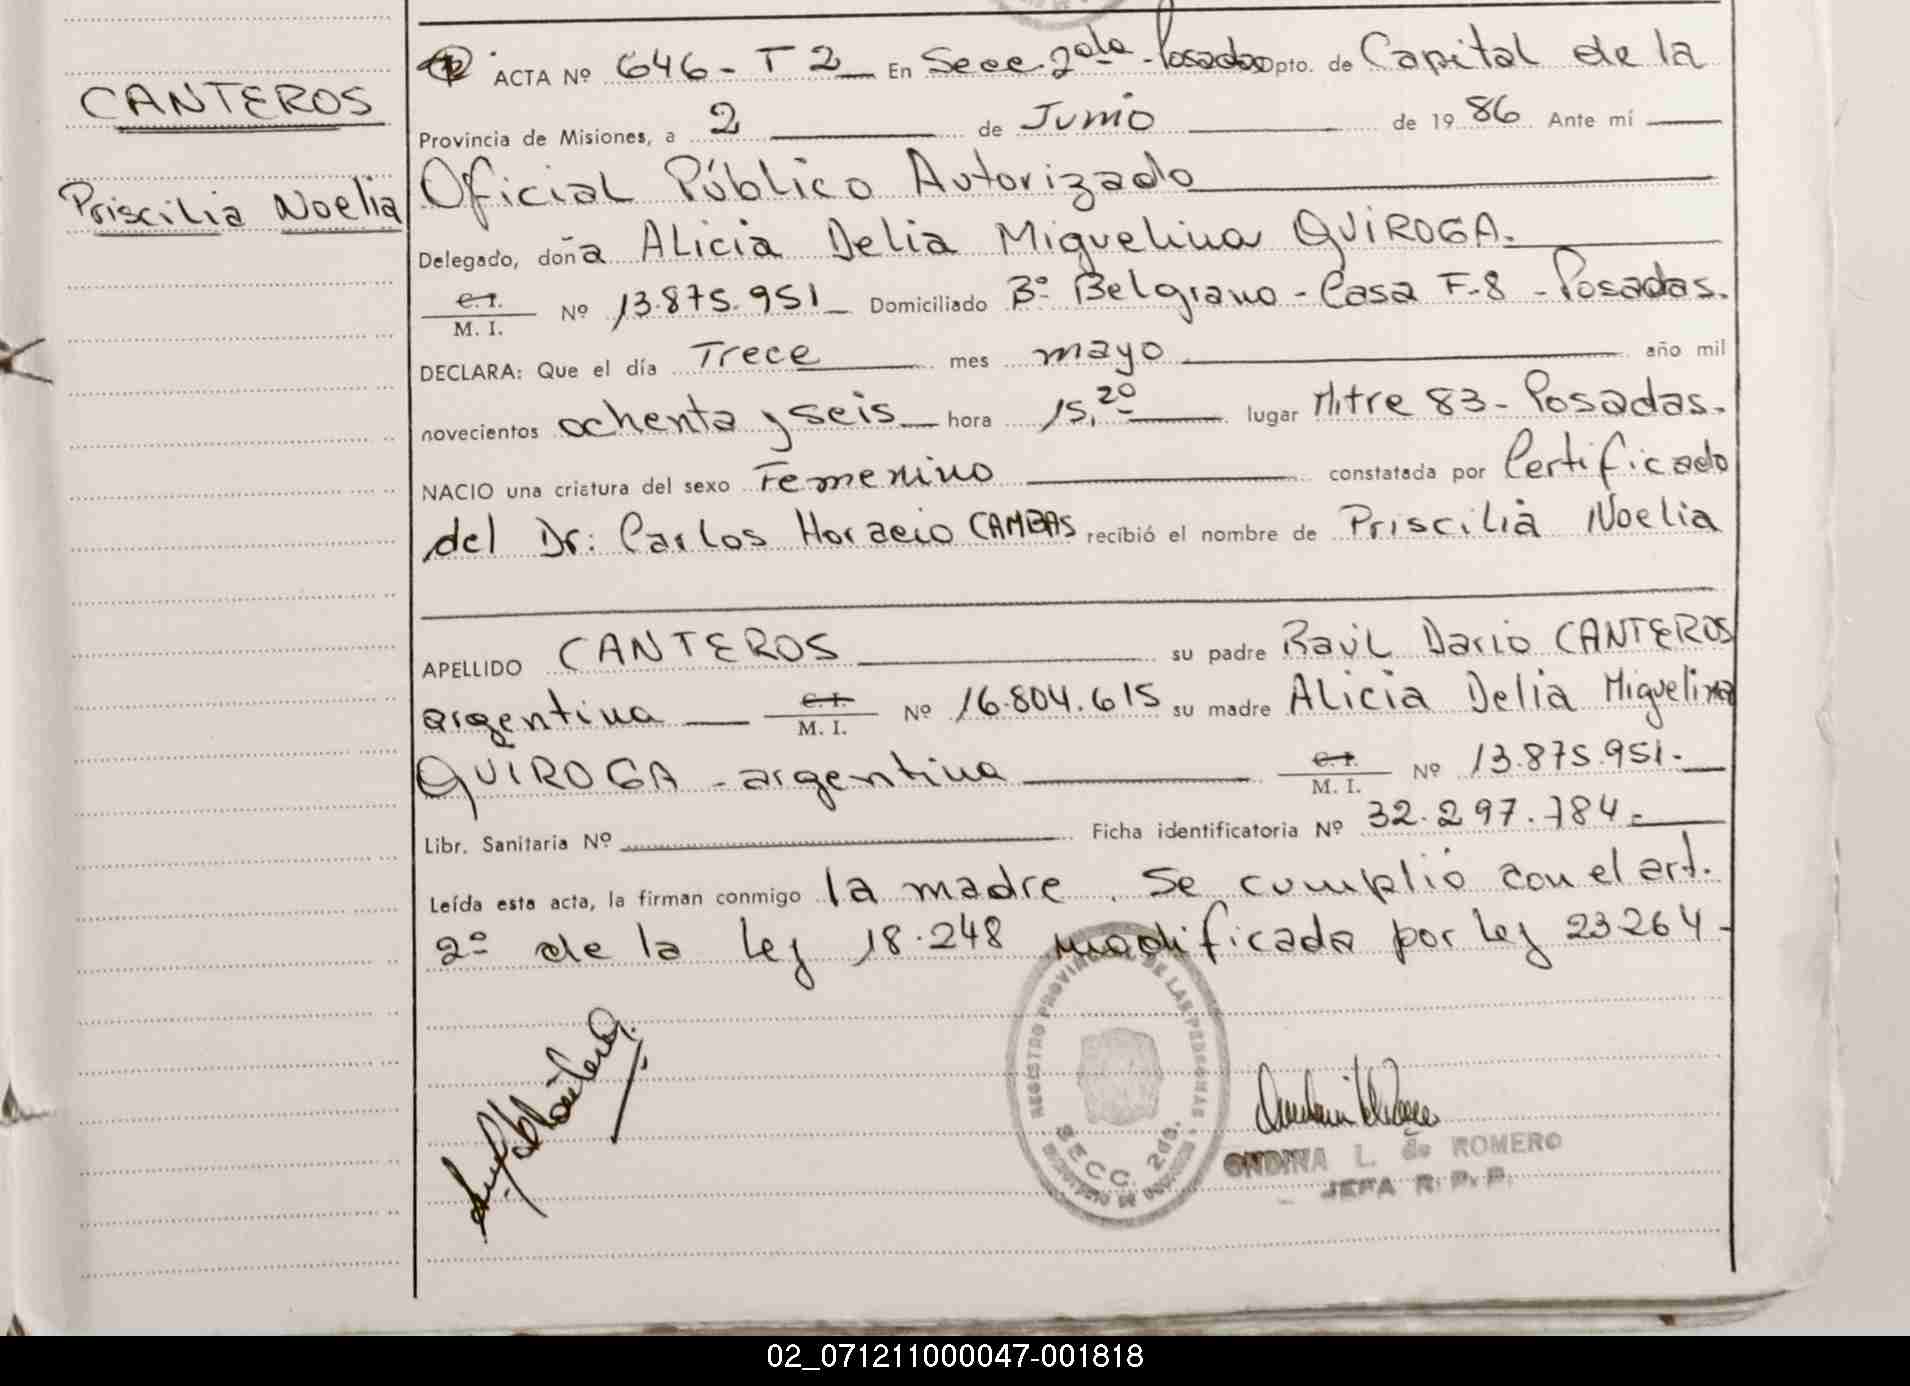 CANTEROS
Priscilia Noelia
ACTA Nº 646 - T 2 En Secc. 2da - Posadas Dpto. de Capital de la
Provincia de Misiones, a 2 de Junio de 1986 Ante mí
Oficial Público Autorizado
Delegado, doña Alicia Delia Miguelina QUIROGA.
C.I. M. I. Nº 13.875.951 Domiciliado Bº Belgrano - Casa F-8 - Posadas.
DECLARA: Que el día Trece mes mayo año mil
novecientos ochenta y seis hora 15,20 lugar Mitre 83 - Posadas.
NACIO una criatura del sexo Femenino constatada por Certificado
del Dr: Carlos Horacio CAMBAS recibió el nombre de Priscilia Noelia
APELLIDO CANTEROS su padre Raúl Dario CANTEROS
argentina C.I. M. I. Nº 16.804.615 su madre Alicia Delia Miguelina
QUIROGA - argentina C.I. M. I. Nº 13.875.951.-
Libr. Sanitaria Nº Ficha identificatoria Nº 32.297.784.-
Leída esta acta, la firman conmigo la madre. Se cumplió con el art.
2º de la Ley 18.248 modificada por Ley 23264 -
REGISTRO PROVINCIAL DE LAS PERSONAS
SECC. 2da.
ONDINA L. de ROMERO
JEFA R. P. P.
02_071211000047-001818